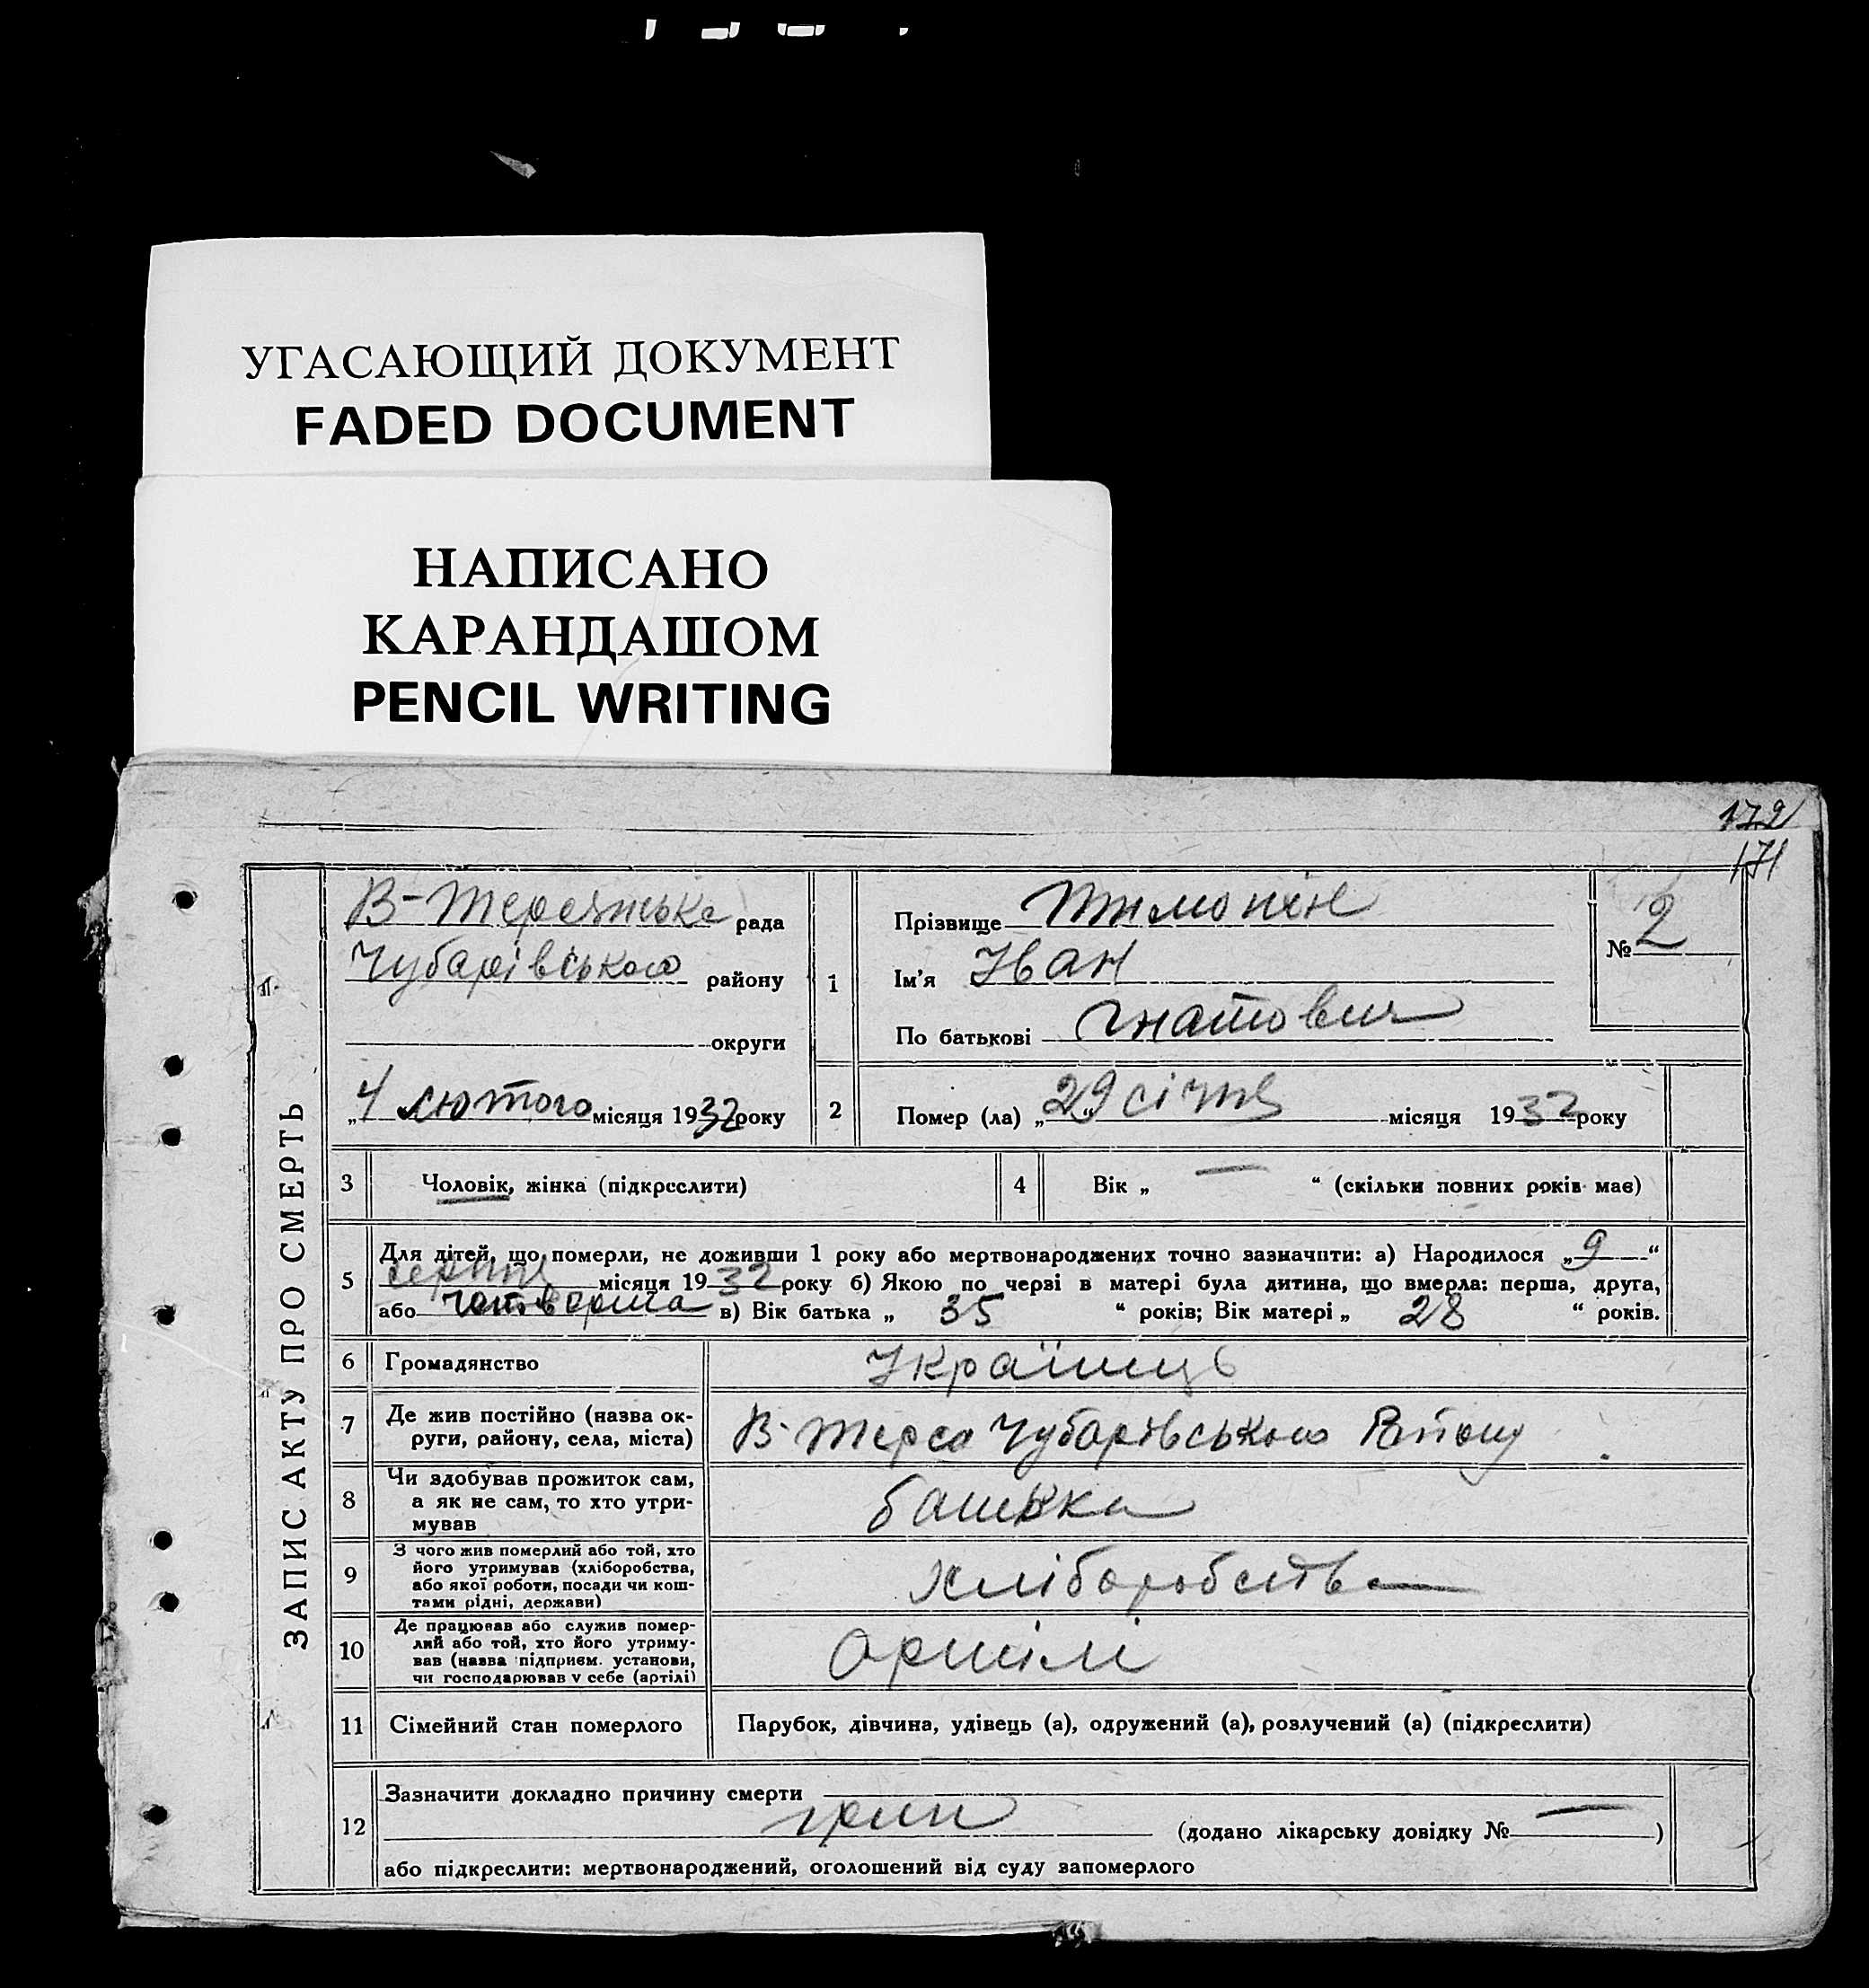 УГАСАЮЩИЙ ДОКУМЕНТ
FADED DOCUMENT
НАПИСАНО
КАРАНДАШОМ
PENCIL WRITING
172
171
ЗАПИС АКТУ ПРО СМЕРТЬ
В-Терсянська рада
Чубарівського району
округи
„4 лютого місяця 1932 року
1
Прізвище
Ім'я Иван
По батькові Гнатович
№ 2
2
Помер (ла) „29 січня місяця 1932 року
3 Чоловік, жінка (підкреслити)
4 Вік „ — “ (скільки повних років має)
5
Для дітей, що померли, не доживши 1 року або мертвонароджених точно зазначити: а) Народилося „9“
серпня місяця 1932 року б) Якою по черві в матері була дитина, що вмерла: перша, друга,
або четверта в) Вік батька „ 35 “ років; Вік матері „ 28 “ років.
6 Громадянство Українець
7 Де жив постійно (назва ок-
руги, району, села, міста)
В-Терса Чубарівського Району
8 Чи здобував прожиток сам,
а як не сам, то хто утри-
мував
батька
9 З чого жив померлий або той, хто
його утримував (хліборобства,
або якої роботи, посади чи кош-
тами рідні, держави)
хліборобства
10 Де працював або служив помер-
лий або той, хто його утриму-
вав (назва підприєм. установи,
чи господарював у себе (артілі)
Артілі
11 Сімейний стан померлого Парубок, дівчина, удівець (а), одружений (а), розлучений (а) (підкреслити)
12
Зазначити докладно причину смерти
грип (додано лікарську довідку № — )
або підкреслити: мертвонароджений, оголошений від суду запомерлого